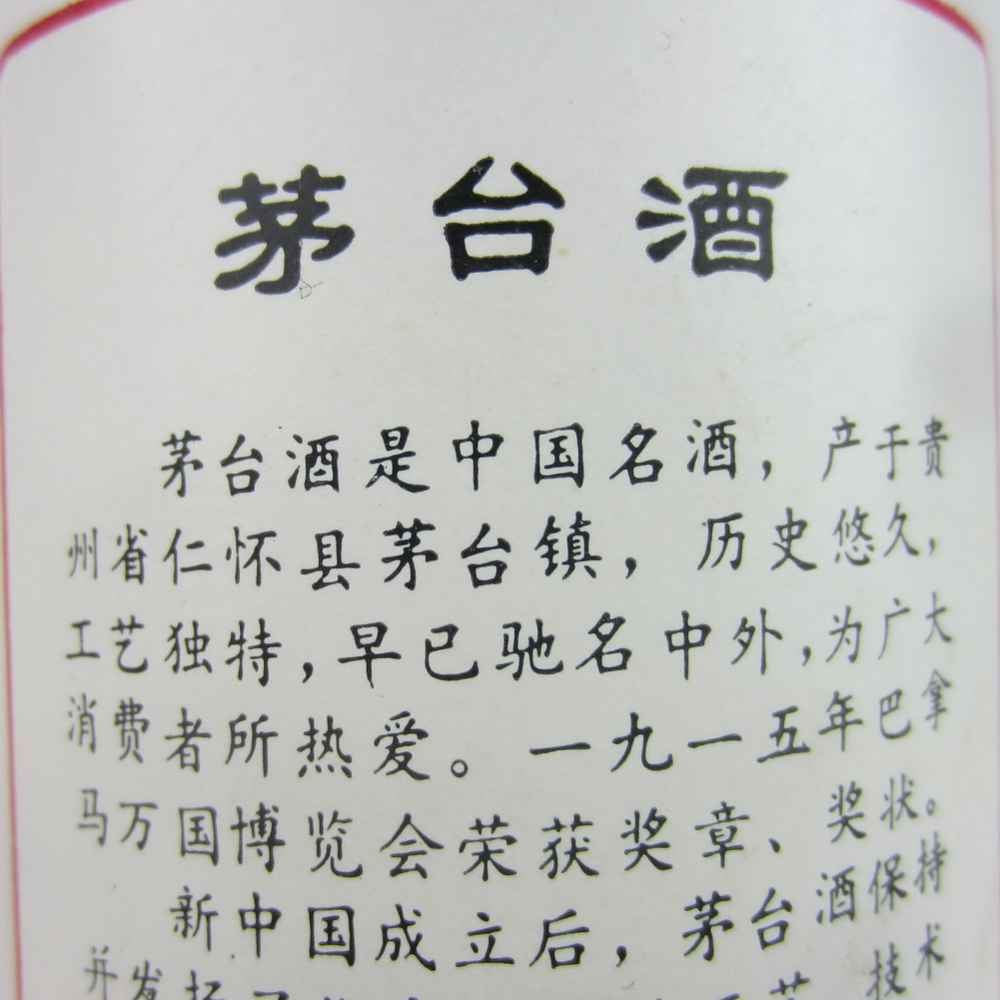 茅台酒
茅台酒是中国名酒，产于贵
州省仁怀县茅台镇，历史悠久，
工艺独特，早已驰名中外，为广大
消费者所热爱。一九一五年巴拿
马万国博览会荣获奖章、奖状。
新中国成立后，茅台酒保持
并发扬 技术